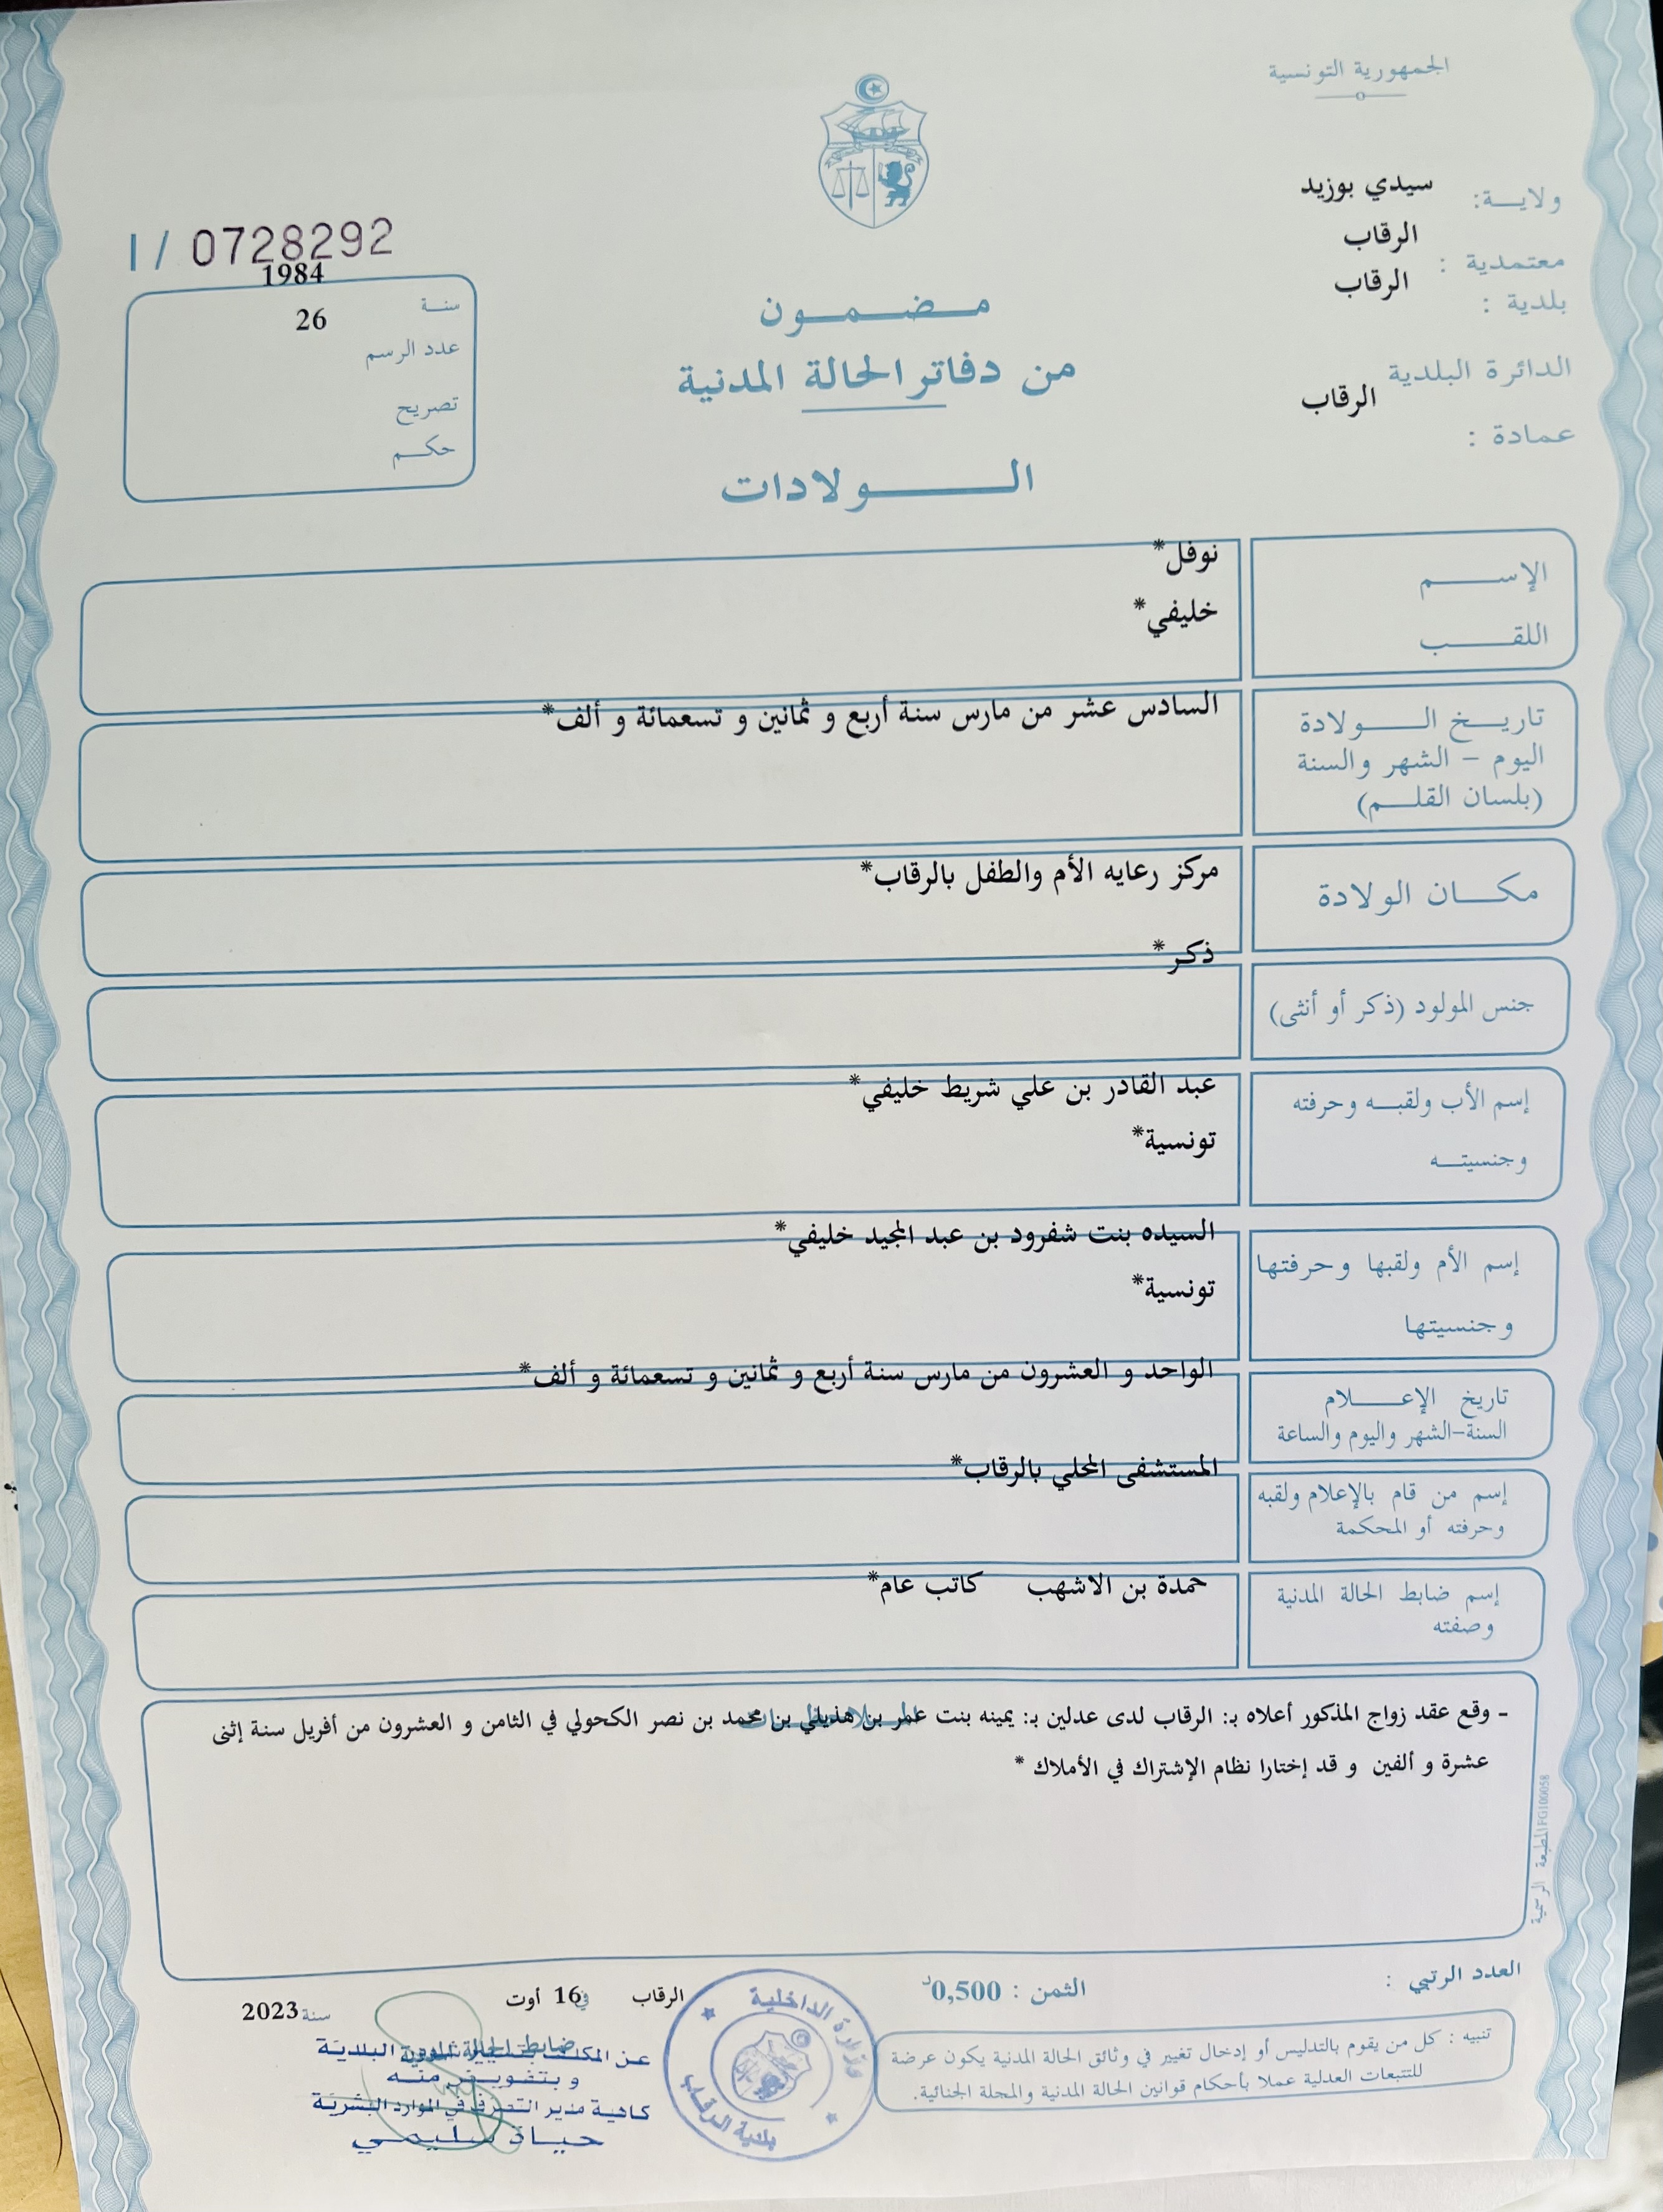 الجمهورية التونسية
ولاية: سيدي بوزيد
معتمدية : الرقاب
بلدية : الرقاب
الدائرة البلدية
عمادة : الرقاب
I / 0728292
سنة 1984
عدد الرسم 26
تصريح
حكم
مضمون
من دفاتر الحالة المدنية
الولادات
الإسم نوفل*
اللقب خليفي*
تاريخ الولادة السادس عشر من مارس سنة أربع و ثمانين و تسعمائة و ألف*
اليوم - الشهر والسنة
(بلسان القلم)
مكان الولادة مركز رعايه الأم والطفل بالرقاب*
جنس المولود (ذكر أو أنثى) ذكر*
إسم الأب ولقبه وحرفته عبد القادر بن علي شريط خليفي*
وجنسيته تونسية*
إسم الأم ولقبها وحرفتها السيده بنت شفرود بن عبد المجيد خليفي*
وجنسيتها تونسية*
تاريخ الإعلام الواحد و العشرون من مارس سنة أربع و ثمانين و تسعمائة و ألف*
السنة-الشهر واليوم والساعة
إسم من قام بالإعلام ولقبه المستشفى المحلي بالرقاب*
وحرفته أو المحكمة
إسم ضابط الحالة المدنية حمدة بن الاشهب كاتب عام*
وصفته
- وقع عقد زواج المذكور أعلاه بـ: الرقاب لدى عدلين بـ: يمينه بنت عمر بن هذيلي بن محمد بن نصر الكحولي في الثامن و العشرون من أفريل سنة إثنى
عشرة و ألفين و قد إختارا نظام الإشتراك في الأملاك *
المطبعة الرسمية FG100058
العدد الرتبي :
الثمن : 0,500د
الرقاب في 16 أوت سنة 2023
تنبيه : كل من يقوم بالتدليس أو إدخال تغيير في وثائق الحالة المدنية يكون عرضة
للتتبعات العدلية عملا بأحكام قوانين الحالة المدنية والمجلة الجنائية.
وزارة الداخلية
بلدية الرقاب
ضابط الحالة المدنية
عن المكلف بتسيير شؤون البلدية
وبتفويض منه
كاهية مدير التصرف في الموارد البشرية
حياة سليمي